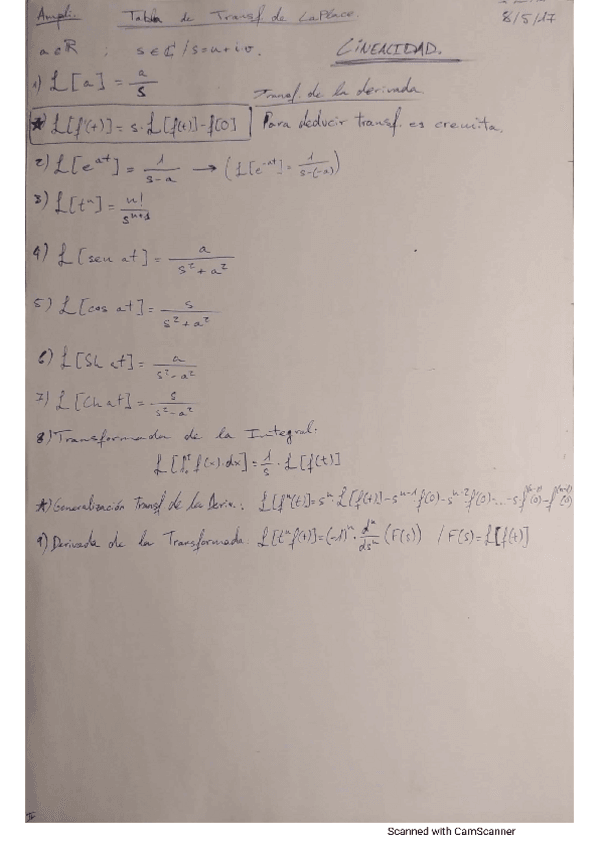 Ampli. Tabla de Transf. de LaPlace. 8/5/17
a∈ℝ ; s∈ℂ / LINEALIDAD.
1) ℒ[a] = a/s
Transf. de la derivada
*) ℒ[f'(t)] = s·ℒ[f(t)] - f(0) Para deducir transf. es
2) ℒ[e^{at}] = 1/(s-a) → (ℒ[e^{-at}] = 1/(s-(-a)))
3) ℒ[t^n] = n!/s^{n+1}
4) ℒ[sen at] = a/(s²+a²)
5) ℒ[cos at] = s/(s²+a²)
6) ℒ[Sh at] = a/(s²-a²)
7) ℒ[Ch at] = s/(s²-a²)
8) Transformada de la Integral.
ℒ[∫₀ᵗ f(x)·dx] = 1/s · ℒ[f(t)]
*) Generalización Transf. de la Deriv.: ℒ[fⁿ(t)] = sⁿ·ℒ[f(t)] - s^{n-1} f(0) - s^{n-2} f'(0) - ... - s f^{(n-2)}(0) - f^{(n-1)}(0)
9) Derivada de la Transformada: ℒ[tⁿf(t)] = (-1)ⁿ · dⁿ/dsⁿ (F(s)) / F(s) = ℒ[f(t)]
Scanned with CamScanner